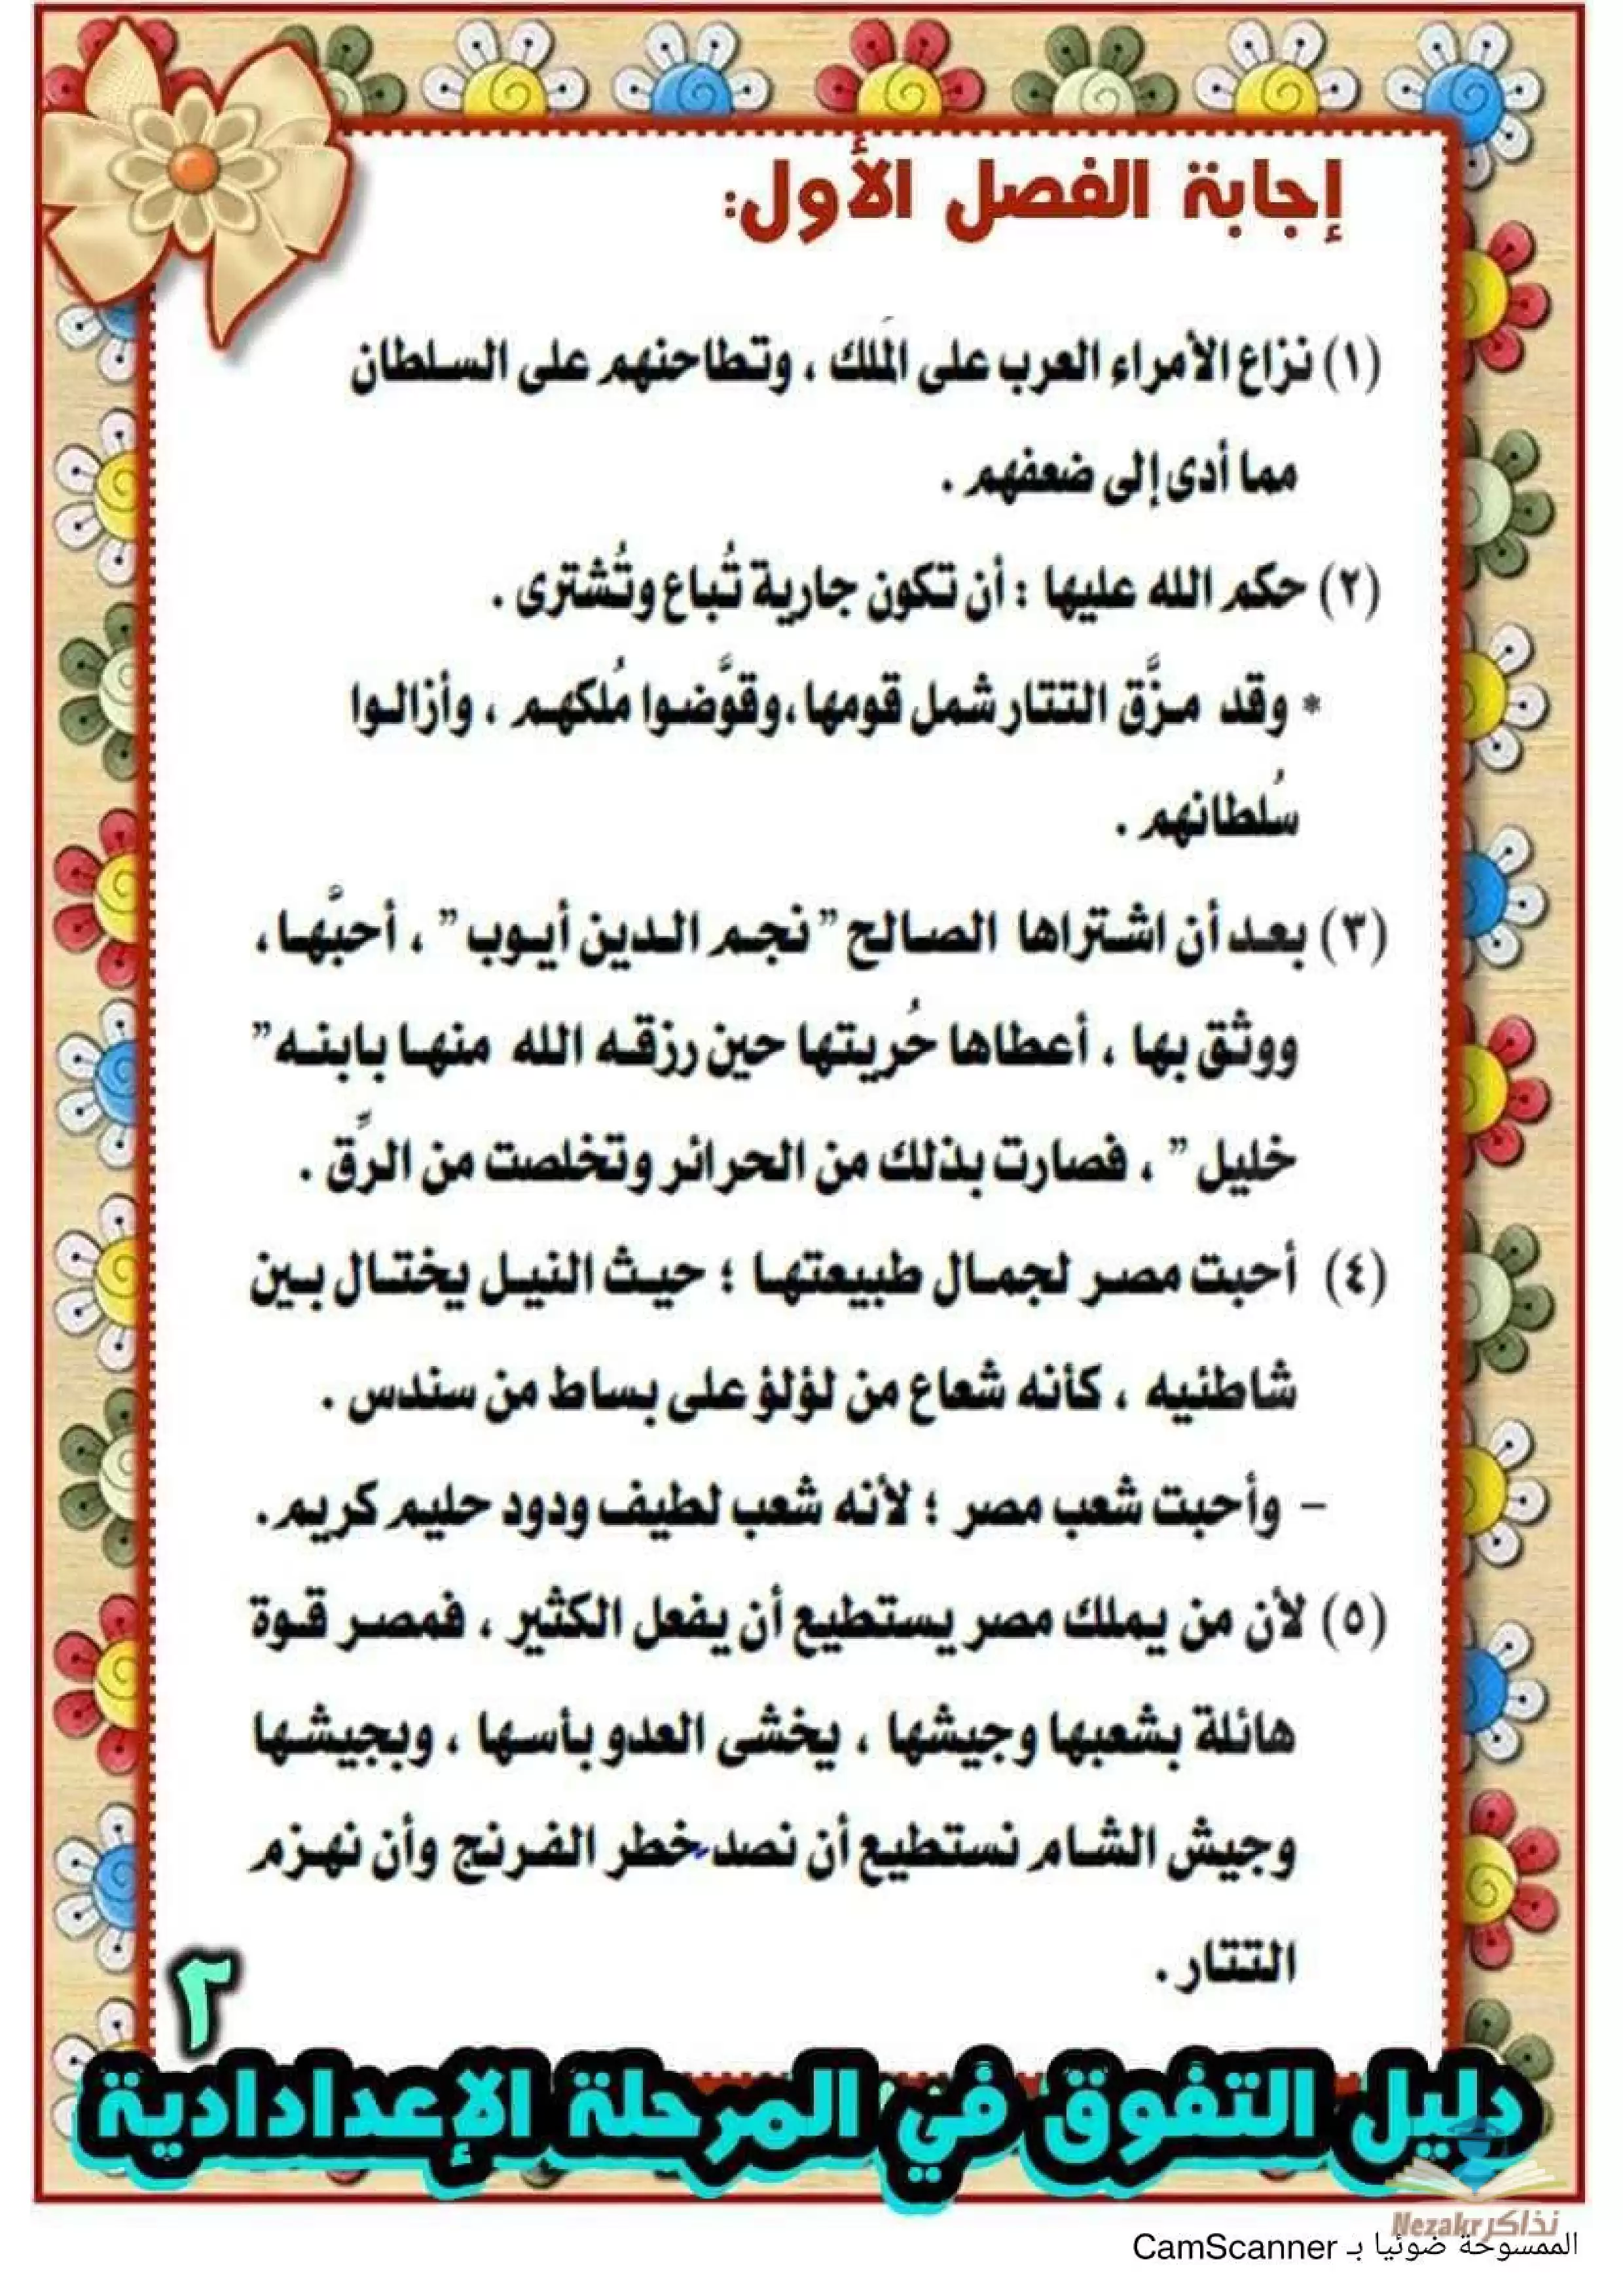 إجابة الفصل الأول:
(١) نزاع الأمراء العرب على المَلك ، وتطاحنهم على السلطان
مما أدى إلى ضعفهم .
(٢) حكم الله عليها : أن تكون جارية تُباع وتُشترى .
* وقد مزَّق التتار شمل قومها ، وقوَّضوا مُلكهم ، وأزالوا
سُلطانهم .
(٣) بعد أن اشتراها الصالح ” نجم الدين أيوب ” ، أحبَّها ،
ووثق بها ، أعطاها حُريتها حين رزقه الله منها بابنه ”
خليل ” ، فصارت بذلك من الحرائر وتخلصت من الرِّق .
(٤) أحبت مصر لجمال طبيعتها ؛ حيث النيل يختال بين
شاطئيه ، كأنه شعاع من لؤلؤ على بساط من سندس .
– وأحبت شعب مصر ؛ لأنه شعب لطيف ودود حليم كريم .
(٥) لأن من يملك مصر يستطيع أن يفعل الكثير ، فمصر قوة
هائلة بشعبها وجيشها ، يخشى العدو بأسها ، وبجيشها
وجيش الشام نستطيع أن نصد خطر الفرنج وأن نهزم
التتار .
٢
دليل التفوق في المرحلة الإعدادادية
Nezakr نذاكر
الممسوحة ضوئيا بـ CamScanner